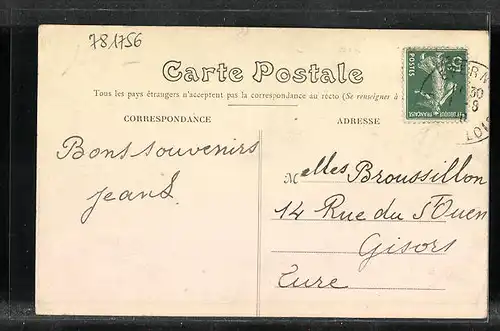 781756
Carte Postale
Tous les pays étrangers n'acceptent pas la correspondance au recto (Se renseigner à
CORRESPONDANCE
ADRESSE
Bons souvenirs
Jean
Melles Broussillon
14 Rue du St Ouen
Gisors
Eure
5c
POSTES
REPUBLIQUE FRANÇAISE
30
9